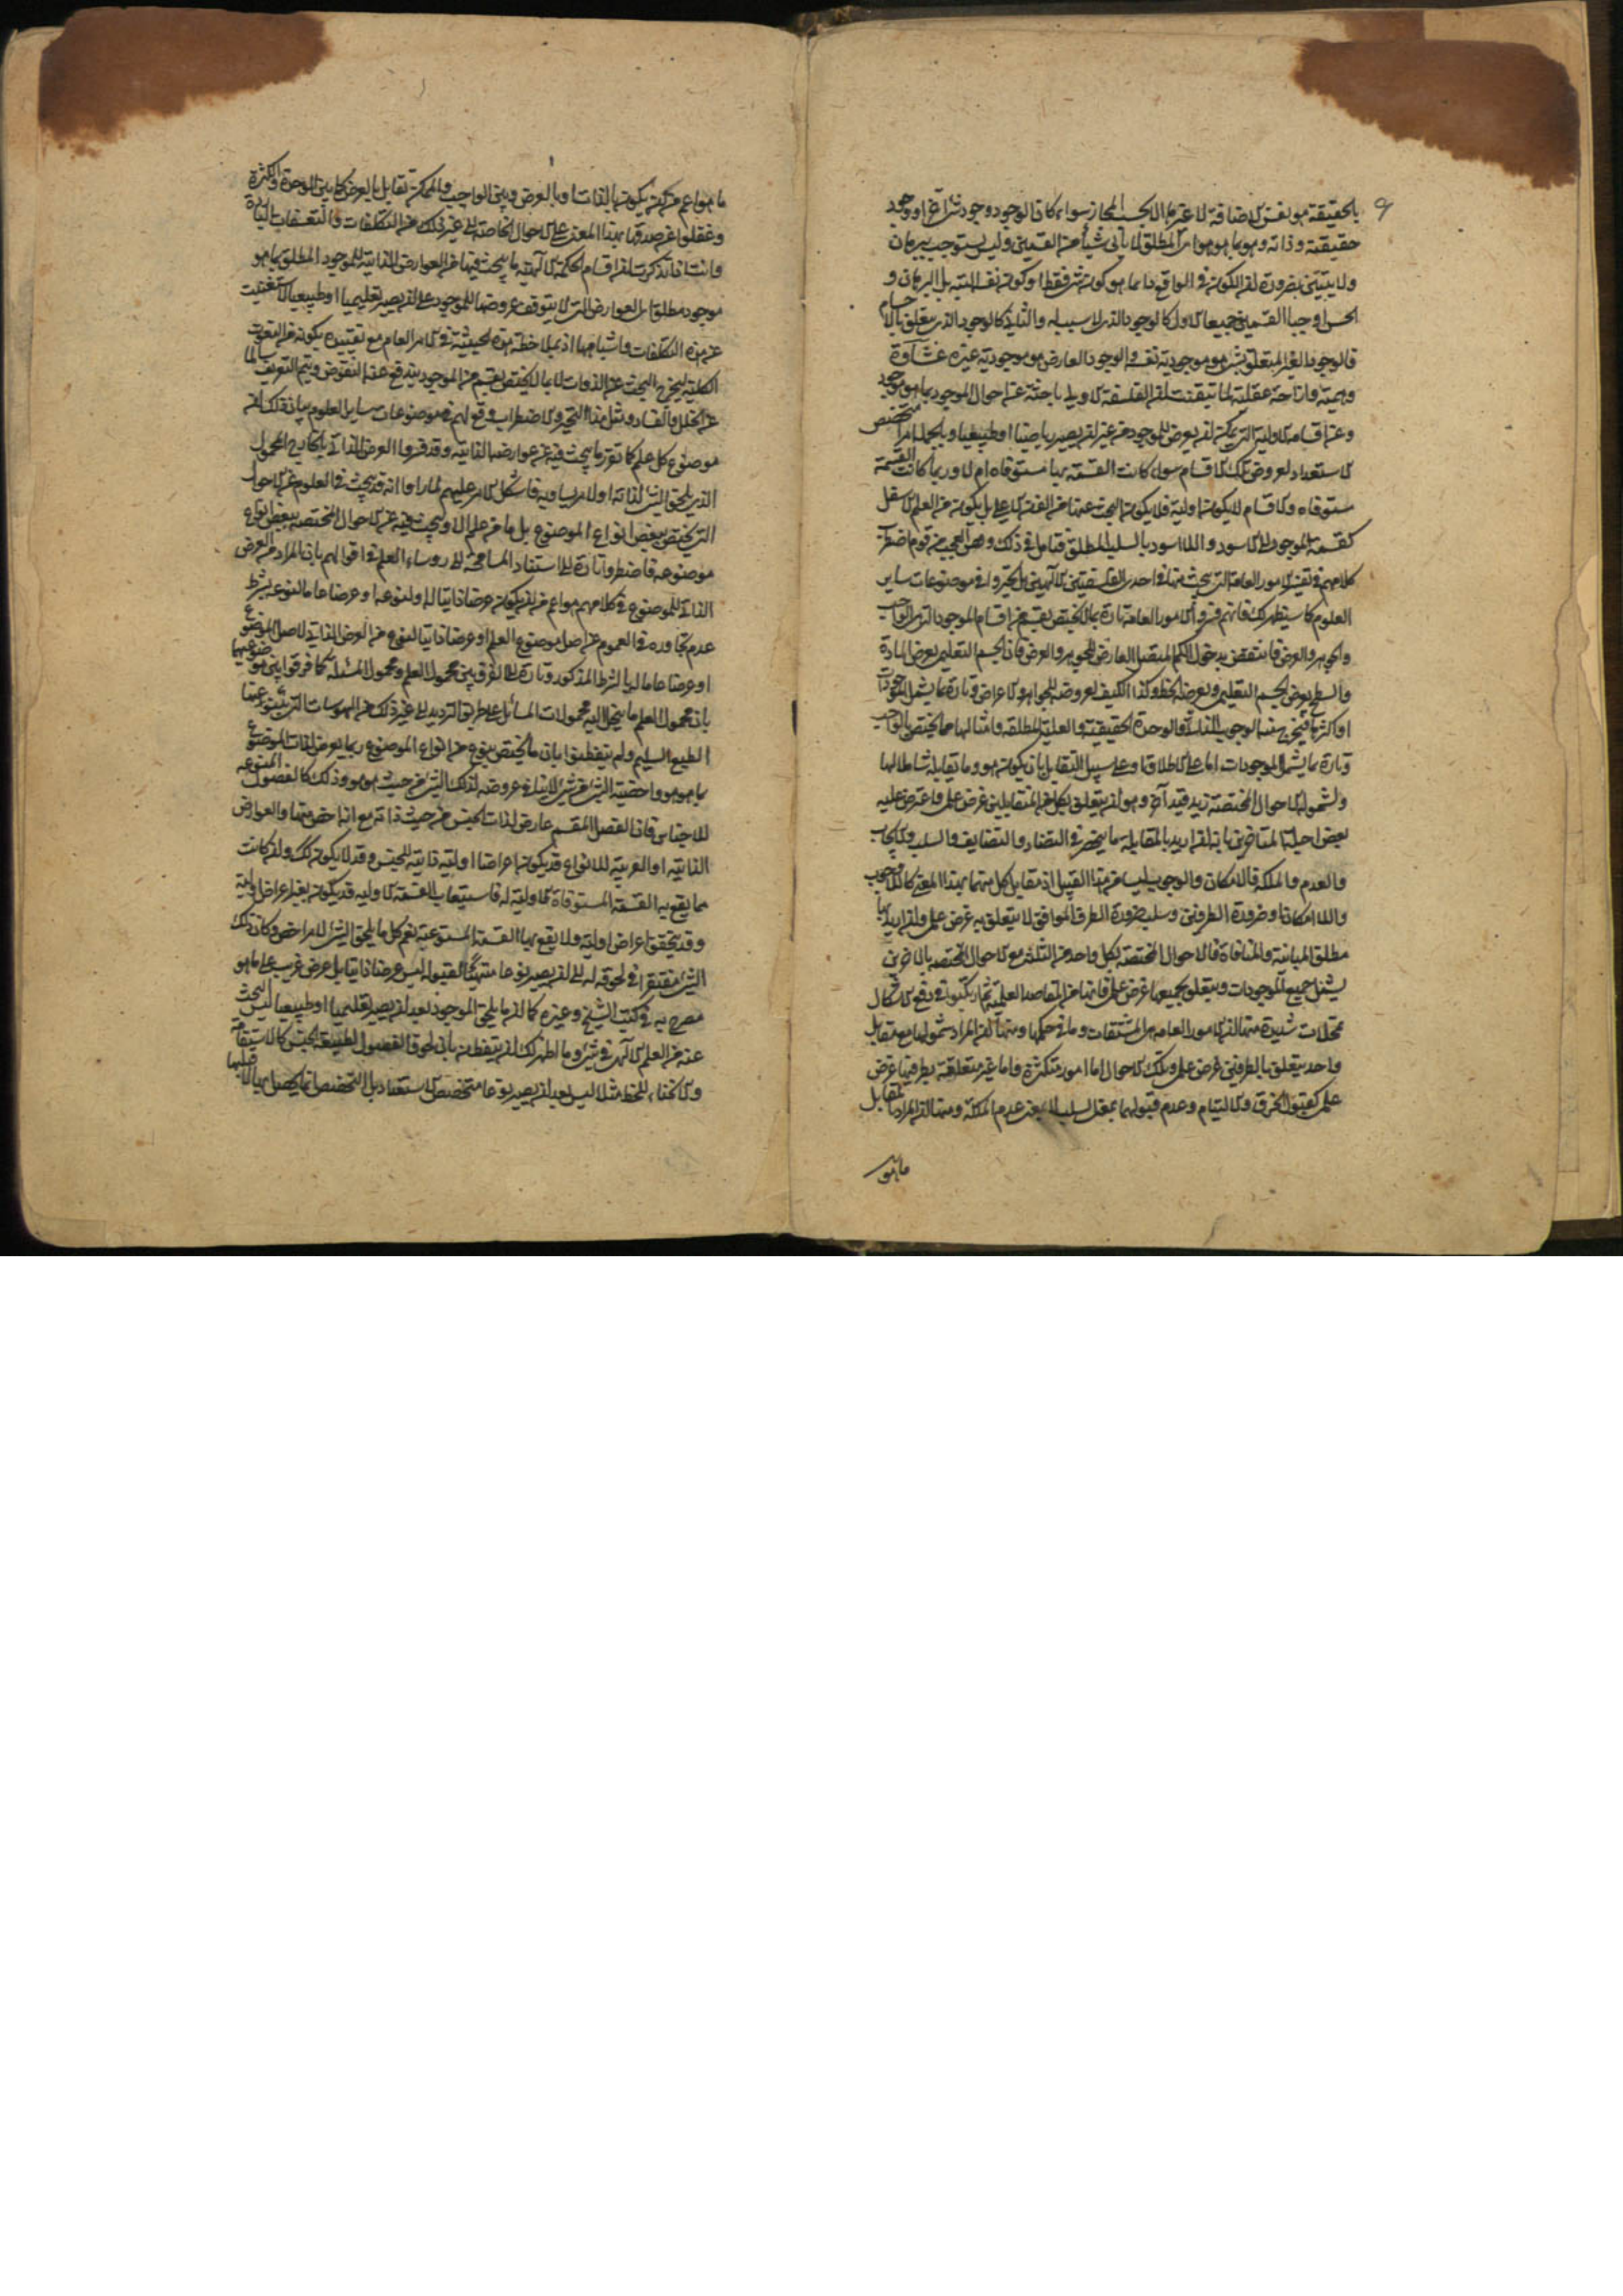 بالحقيقة هو نفس الاضافة لا غيرها الا بحسب المجاز سواء كان الوجود وجود شئ آخر او وجود
حقيقته وذاته وهو بما هو هو اى المطلق لا يأبى شيأ من القسمين وليس يستوجب ببرهان
ولا يتبين بضرورة ان الكون فى الواقع دائما هو كون شئ فقط او كون نفسه البته بل البرهان و
الحس اوجبا القسمين جميعا الاول كالوجود الذى لا سبب له والثانى كالوجود الذى يتعلق بالاجسام
فالوجود الغير المتعلق بشئ هو موجودية نفسه والوجود العارض هو موجودية غيره غشاوة
وهمية وازاحة عقلية لما تيقنت ان الفلسفة الاولى باحثة عن احوال الموجود بما هو موجود
وعن اقسامه الاولية التى يمكن ان يعرض للموجود من غير ان يصير رياضيا او طبيعيا وبالجملة امرا متخصص
الاستعداد لعروض تلك الاقسام سواء كانت القسمة بها مستوفاه ام لا وربما كانت القسمة
مستوفاه والاقسام لا يكون اولية فلا يكون البحث عنها من الفن الاعلى بل يكون من العلم الاسفل
كقسمة الموجود الى الاسود واللااسود بالسلب المطلق فتامل فى ذلك واقض العجب من قوم اضطرب
كلامهم فى تفسير الامور العامة التى يبحث عنها فى احدى الفلسفتين الالهيتين بل تحيروا فى موضوعات ساير
العلوم كما سيظهر لك فانهم فسروا الامور العامة تارة بما لا يختص بقسم من اقسام الموجود التى هى الواجب
والجوهر والعرض فانتقض بدخول الكم المتصل العارض للجوهر والعرض فان الجسم التعليمى يعرض المادة
والسطح يعرض الجسم التعليمى ويعرضه الخط وكذا الكيف لعروضه للجواهر والاعراض وتارة بما يشمل الموجودات
او اكثرها فيخرج منه الوجوب الذاتى والوحدة الحقيقية والعلية المطلقة وامثالها مما يختص بالواجب
وتارة بما يشمل الموجودات اما على الاطلاق او على سبيل التقابل بان يكون هو وما يقابله شاملا لها
ولشموله الاحوال المختصة زيد قيد آخر وهو ان يتعلق بكل من المتقابلين غرض علمى واعترض عليه
بعض اجلة المتاخرين بانه ان اريد بالمقابلة ما ينحصر فى التضاد والتضايف والسلب والايجاب
والعدم والملكة فالامكان والوجوب ليسا من هذا القبيل اذ مقابل كل منهما بهذا المعنى كاللاوجوب
واللاامكان او ضرورة الطرفين وسلب ضرورة الطرف الموافق لا يتعلق به غرض علمى وان اريد بها
مطلق المباينة والمنافاة فالاحوال المختصة بكل واحد من الثلث مع الاحوال المختصة بالاخرين
يشمل جميع الموجودات ويتعلق بجميعها غرض علمى فانها من المقاصد العلمية ثم ارتكبوا فى دفع الاشكال
تمحلات شديدة منها ان الامور العامة هى المشتقات وما فى حكمها ومنها ان المراد شمولها مع مقابل
واحد يتعلق بالطرفين غرض علمى وتلك الاحوال اما امور متكثرة واما غير متعلقة بطرفيها غرض
علمى كقبول الخرق والالتيام وعدم قبولهما بمعنى السلب لا بمعنى عدم الملكة ومنها ان المراد بالتقابل
ما هو
ما هو اعم من ان يكون بالذات او بالعرض وبين الواجب والممكن تقابل بالعرض كما بين الوحدة والكثرة
وغفلوا عن صدقها بهذا المعنى على الاحوال الخاصة الى غير ذلك من التكلفات والتعسفات الباردة
وانت اذا تذكرت ان اقسام الحكمة الالهية ما يبحث فيها عن العوارض الذاتية للموجود المطلق بما هو
موجود مطلق اى العوارض التى لا يتوقف عروضها للموجود على ان يصير تعليميا او طبيعيا لاستغنيت
عن هذه التكلفات واشباهها اذ بملاحظة هذه الحيثية فى الامر العام مع تقييده بكونه من النعوت
الكلية ليخرج البحث عن الذوات لا بما لا يختص بقسم من الموجود يندفع عنه النقوض ويتم التعريف سالما
عن الخلل والفساد ومثل هذا التحير والاضطراب وقع لهم فى موضوعات ساير العلوم بيان ذلك ان
موضوع كل علم كما تقرر ما يبحث فيه عن عوارضه الذاتية وقد فسروا العرض الذاتى بالخارج المحمول
الذى يلحق الشئ لذاته او لامر يساويه فاشكل الامر عليهم لما راوا انه قد يبحث فى العلوم عن الاحوال
التى يختص ببعض انواع الموضوع بل ما من علم الا ويبحث فيه عن الاحوال المختصة ببعض انواع
موضوعه فاضطروا تارة الى استناد المسامحة الى رؤساء العلم فى اقوالهم بان المراد من العرض
الذاتى للموضوع فى كلامهم هو اعم من ان يكون عرضا ذاتيا له او لنوعه او عرضا عاما لنوعه بشرط
عدم تجاوزه فى العموم عن اصل موضوع العلم او عرضا ذاتيا لنوع من العرض الذاتى لاصل الموضوع
او عرضا عاما له بالشرط المذكور وتارة الى الفرق بين محمول العلم ومحمول المسئلة كما فرقوا بين موضوعيهما
بان محمول العلم ما ينحل اليه محمولات المسائل على طريق الترديد الى غير ذلك من الهوسات التى ينبو عنها
الطبع السليم ولم يتفطنوا بان ما يختص بنوع من انواع الموضوع ربما يعرض لذات الموضوع
بما هو هو واخصية الشئ من شئ لا ينافى عروضه لذلك الشئ من حيث هو هو وذلك كالفصول المنوعه
للاجناس فان الفصل المقسم عارض لذات الجنس من حيث ذاته مع انه اخص منها والعوارض
الذاتية او الغريبة للانواع قد يكون اعراضا اولية ذاتية للجنس وقد لا يكون كذلك وان كانت
مما يقع به القسمة المستوفاة الاولية له فاستيعاب القسمة الاولية قد يكون بغير اعراض اولية
وقد يتحقق اعراض اولية ولا يقع بها القسمة المستوعبة نعم كل ما يلحق الشئ لامر اخص وكان ذلك
الشئ مفتقرا فى لحوقه له الى ان يصير نوعا متهيئا لقبوله ليس عرضا ذاتيا بل عرض غريب على ما هو
مصرح به فى كتب الشيخ وغيره كما ان ما يلحق الموجود بعد ان يصير تعليميا او طبيعيا ليس البحث
عنه من العلم الالهى فى شئ وما اظهر لك ان يتفطن بان لحوق الفصول لطبيعة الجنس كالاستقامة
والانحناء للخط مثلا ليس بعد ان يصير نوعا متخصص الاستعداد بل التخصص انما يحصل بها لا قبلها